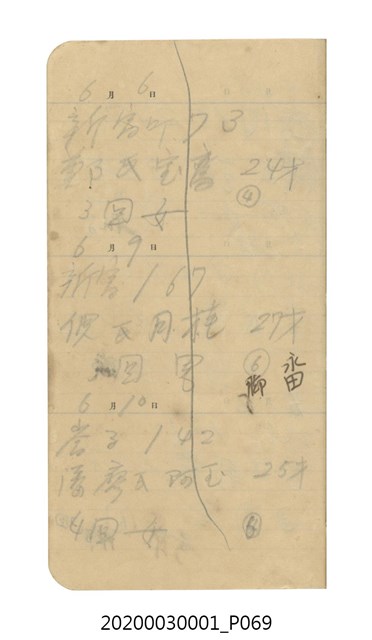 6月6日
新宮 73
鄭氏宝 24才
④
3回女
6月9日
新宮 167
倪氏月桂 27才
回男 ⑥
番
永田
6月10日
子 142
潘廖氏阿玉 25才
4回女 ⑥
20200030001_P069